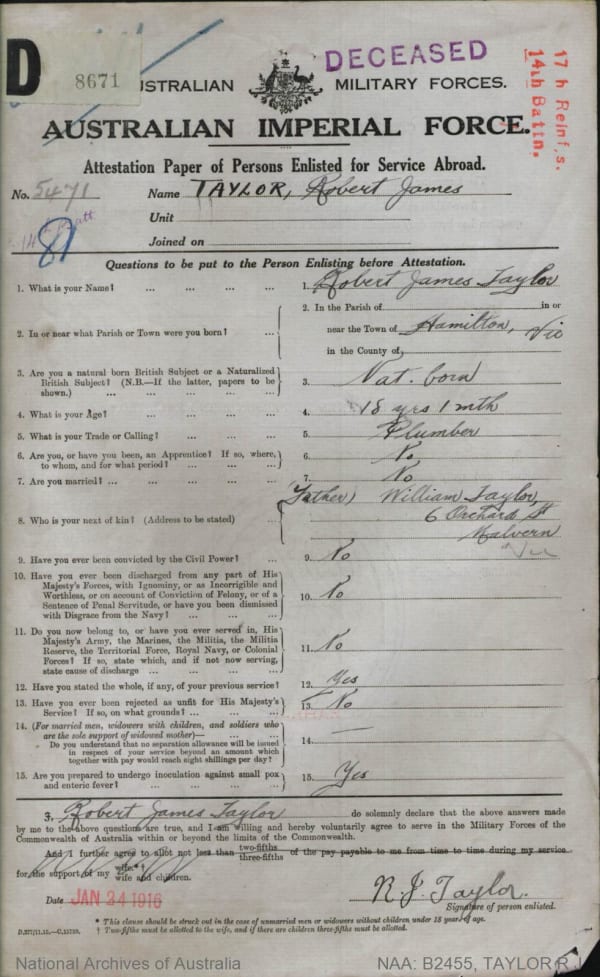 D
8671
DECEASED
AUSTRALIAN MILITARY FORCES.
AUSTRALIAN IMPERIAL FORCE.
17 h Reinf,s.
14th Battn.
Attestation Paper of Persons Enlisted for Service Abroad.
No. 5471 Name TAYLOR, Robert James
Unit
14th Batt
81
Joined on
Questions to be put to the Person Enlisting before Attestation.
1. What is your Name? ... ... ... ... 1. Robert James Taylor
2. In or near what Parish or Town were you born? ... 2. In the Parish of in or
near the Town of Hamilton, Vic
in the County of
3. Are you a natural born British Subject or a Naturalized
British Subject? (N.B.—If the latter, papers to be
shown.) ... ... ... ... 3. Nat. born
4. What is your Age? ... ... ... ... 4. 18 yrs 1 mth
5. What is your Trade or Calling? ... ... ... 5. Plumber
6. Are you, or have you been, an Apprentice? If so, where,
to whom, and for what period? ... ... ... 6. No
7. Are you married? ... ... ... ... 7. No
8. Who is your next of kin? (Address to be stated) ... (Father) William Taylor,
6 Orchard St
Malvern
Vic
9. Have you ever been convicted by the Civil Power? ... 9. No
10. Have you ever been discharged from any part of His
Majesty's Forces, with Ignominy, or as Incorrigible and
Worthless, or on account of Conviction of Felony, or of a
Sentence of Penal Servitude, or have you been dismissed
with Disgrace from the Navy? ... ... 10. No
11. Do you now belong to, or have you ever served in, His
Majesty's Army, the Marines, the Militia, the Militia
Reserve, the Territorial Force, Royal Navy, or Colonial
Forces? If so, state which, and if not now serving,
state cause of discharge ... ... ... 11. No
12. Have you stated the whole, if any, of your previous service? 12. Yes
13. Have you ever been rejected as unfit for His Majesty's
Service? If so, on what grounds? ... ... ... 13. No
14. (For married men, widowers with children, and soldiers who
are the sole support of widowed mother)— ... ...
Do you understand that no separation allowance will be issued
in respect of your service beyond an amount which
together with pay would reach eight shillings per day? 14. —
15. Are you prepared to undergo inoculation against small pox
and enteric fever? ... ... ... ... 15. Yes
I, Robert James Taylor do solemnly declare that the above answers made
by me to the above questions are true, and I am willing and hereby voluntarily agree to serve in the Military Forces of the
Commonwealth of Australia within or beyond the limits of the Commonwealth.
And I further agree to allot not less than two-fifths three-fifths of the pay payable to me from time to time during my service
for the support of my wife.*† wife and children.
Date JAN 24 1916 R.J. Taylor.
Signature of person enlisted.
* This clause should be struck out in the case of unmarried men or widowers without children under 18 years of age.
† Two-fifths must be allotted to the wife, and if there are children three-fifths must be allotted.
National Archives of Australia NAA: B2455, TAYLOR R J